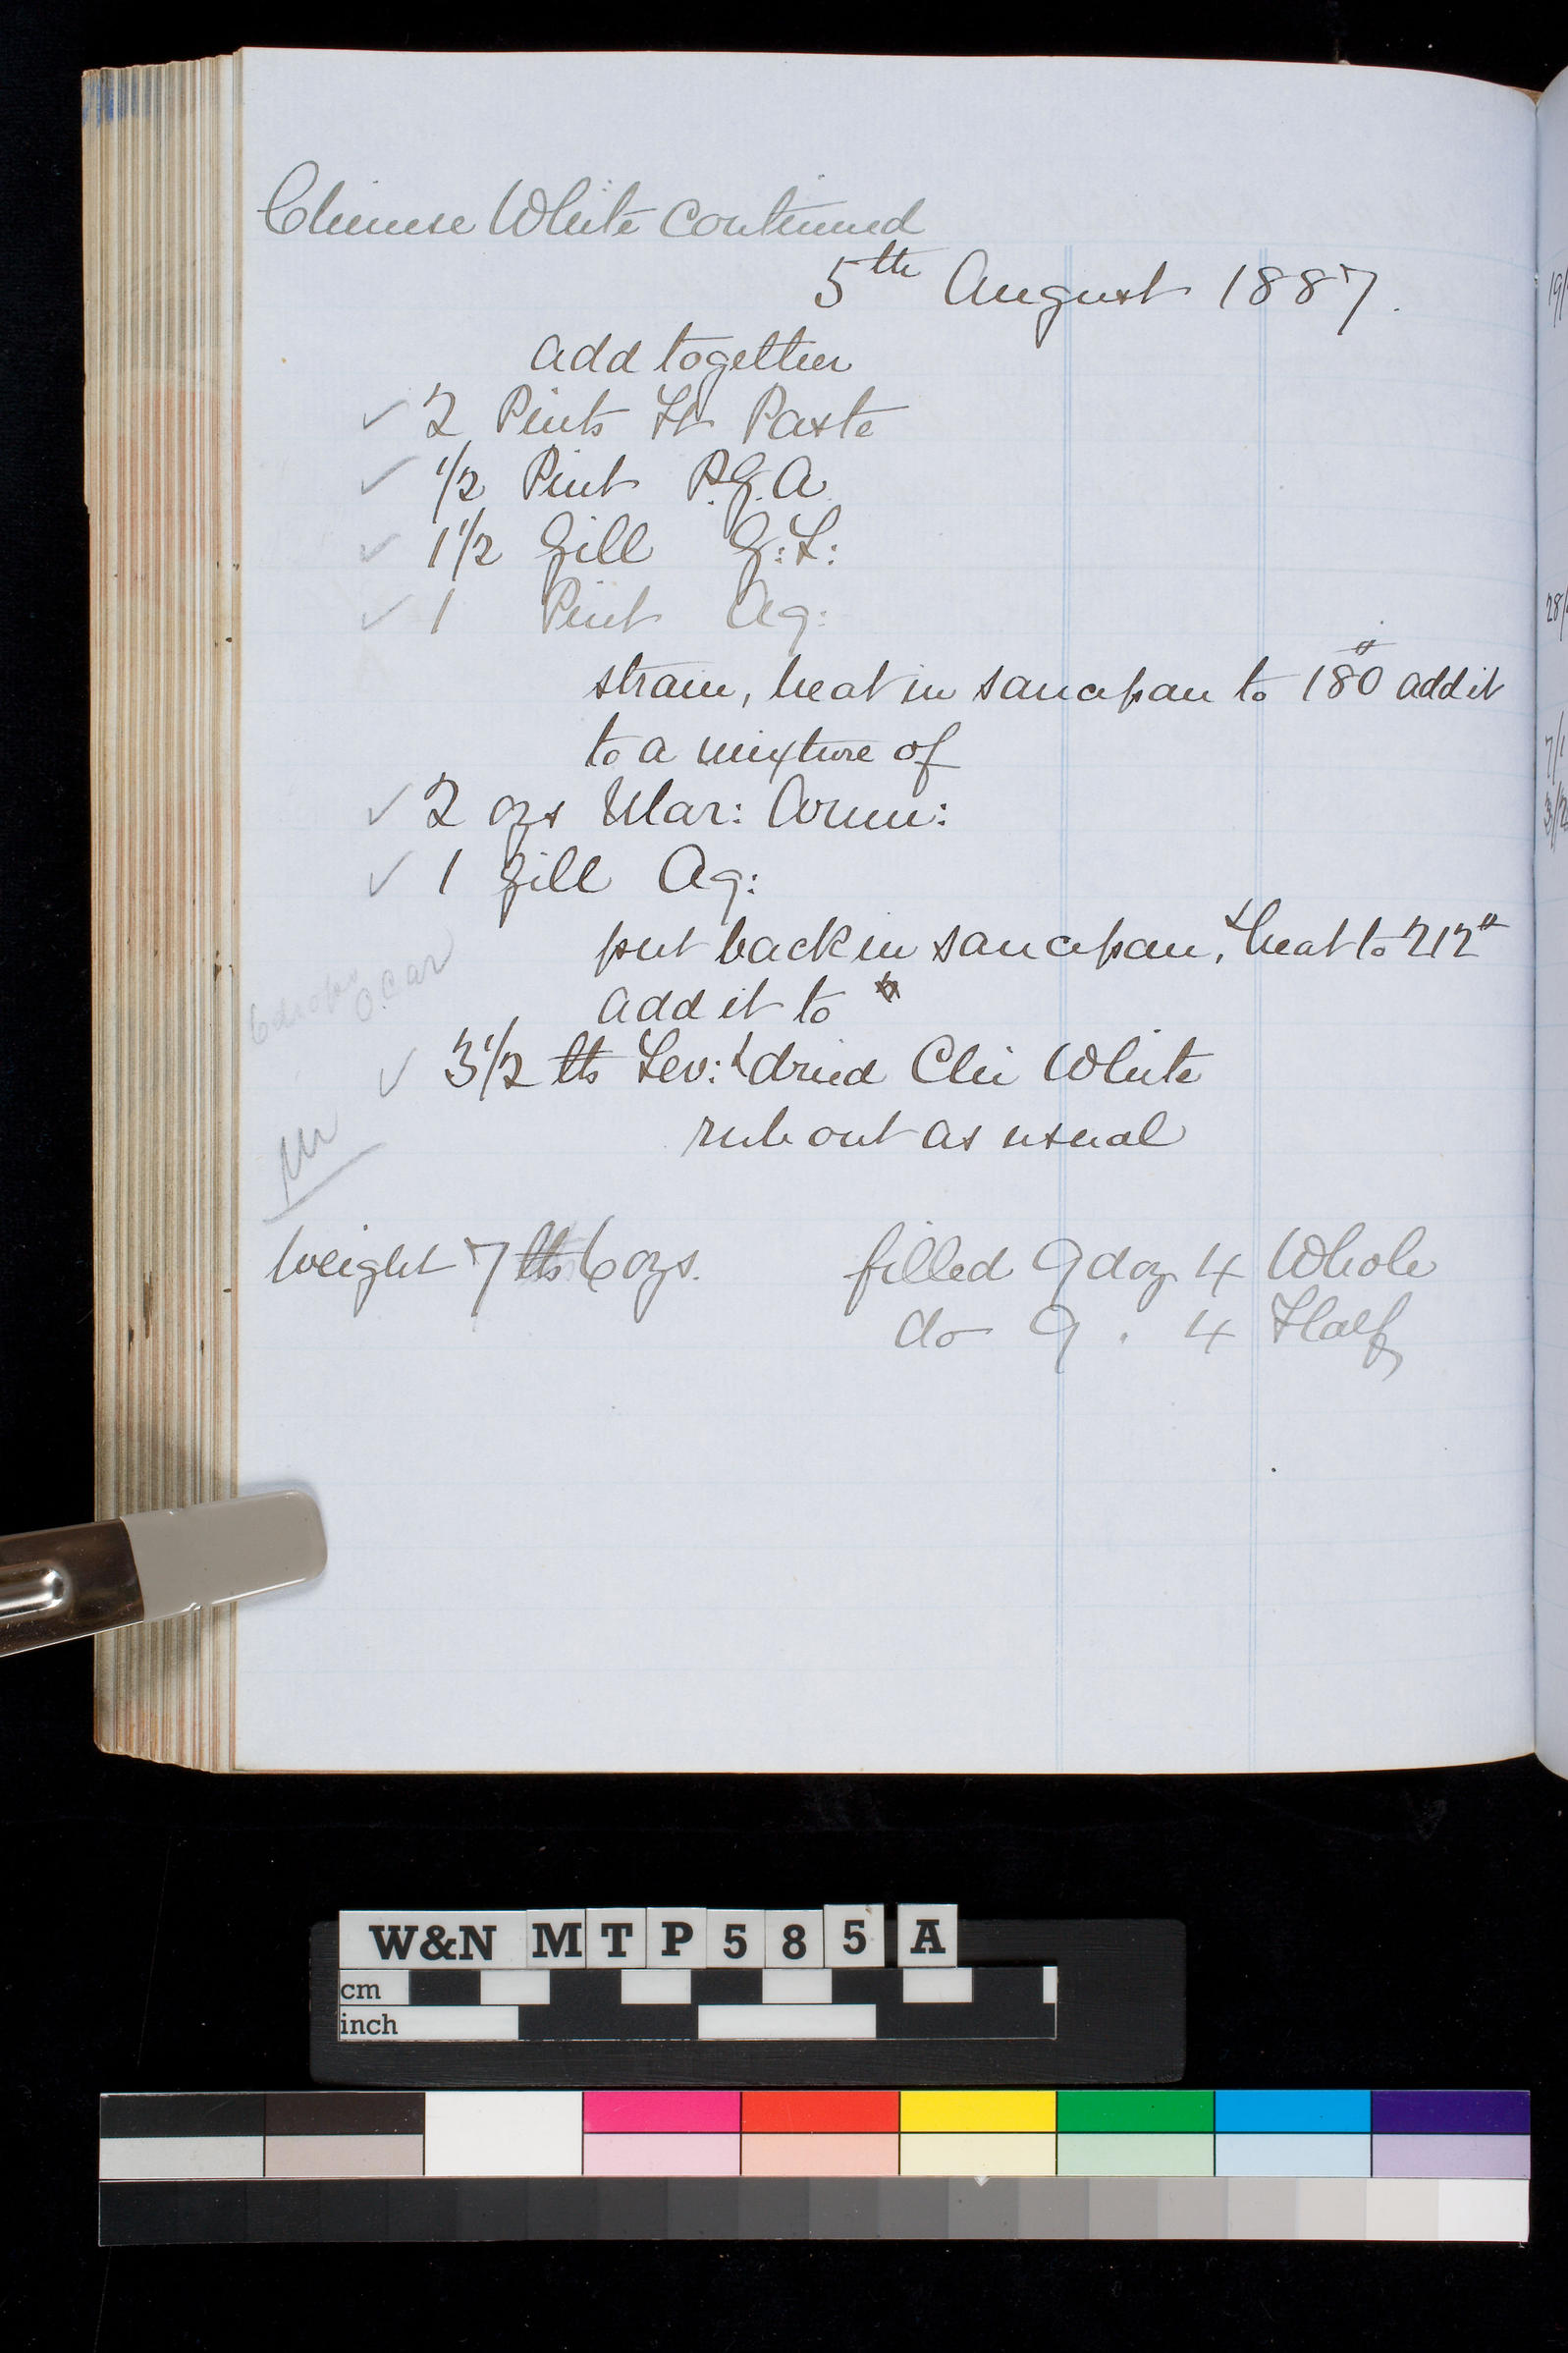 Chinese White continued
5th August 1887.
add together
✓ 2 Pints St Paste
✓ 1/2 Pint P.G.A
✓ 1 1/2 Gill G:S:
✓ 1 Pint Aq:
strain, heat in saucepan to 180° add it
to a mixture of
✓ 2 ozs Mar: Arum:
✓ 1 Gill Aq:
put back in saucepan, & heat to 212°
add it to
6 drops
O. Car
✓ 3 1/2 lbs Lev: & dried Chi White
rub out as usual
weight 7 lbs 6 ozs. filled 9 doz 4 Whole
do 9 . 4 Half
19/
28/
7/
3/2
W&N MTP585 A
cm
inch